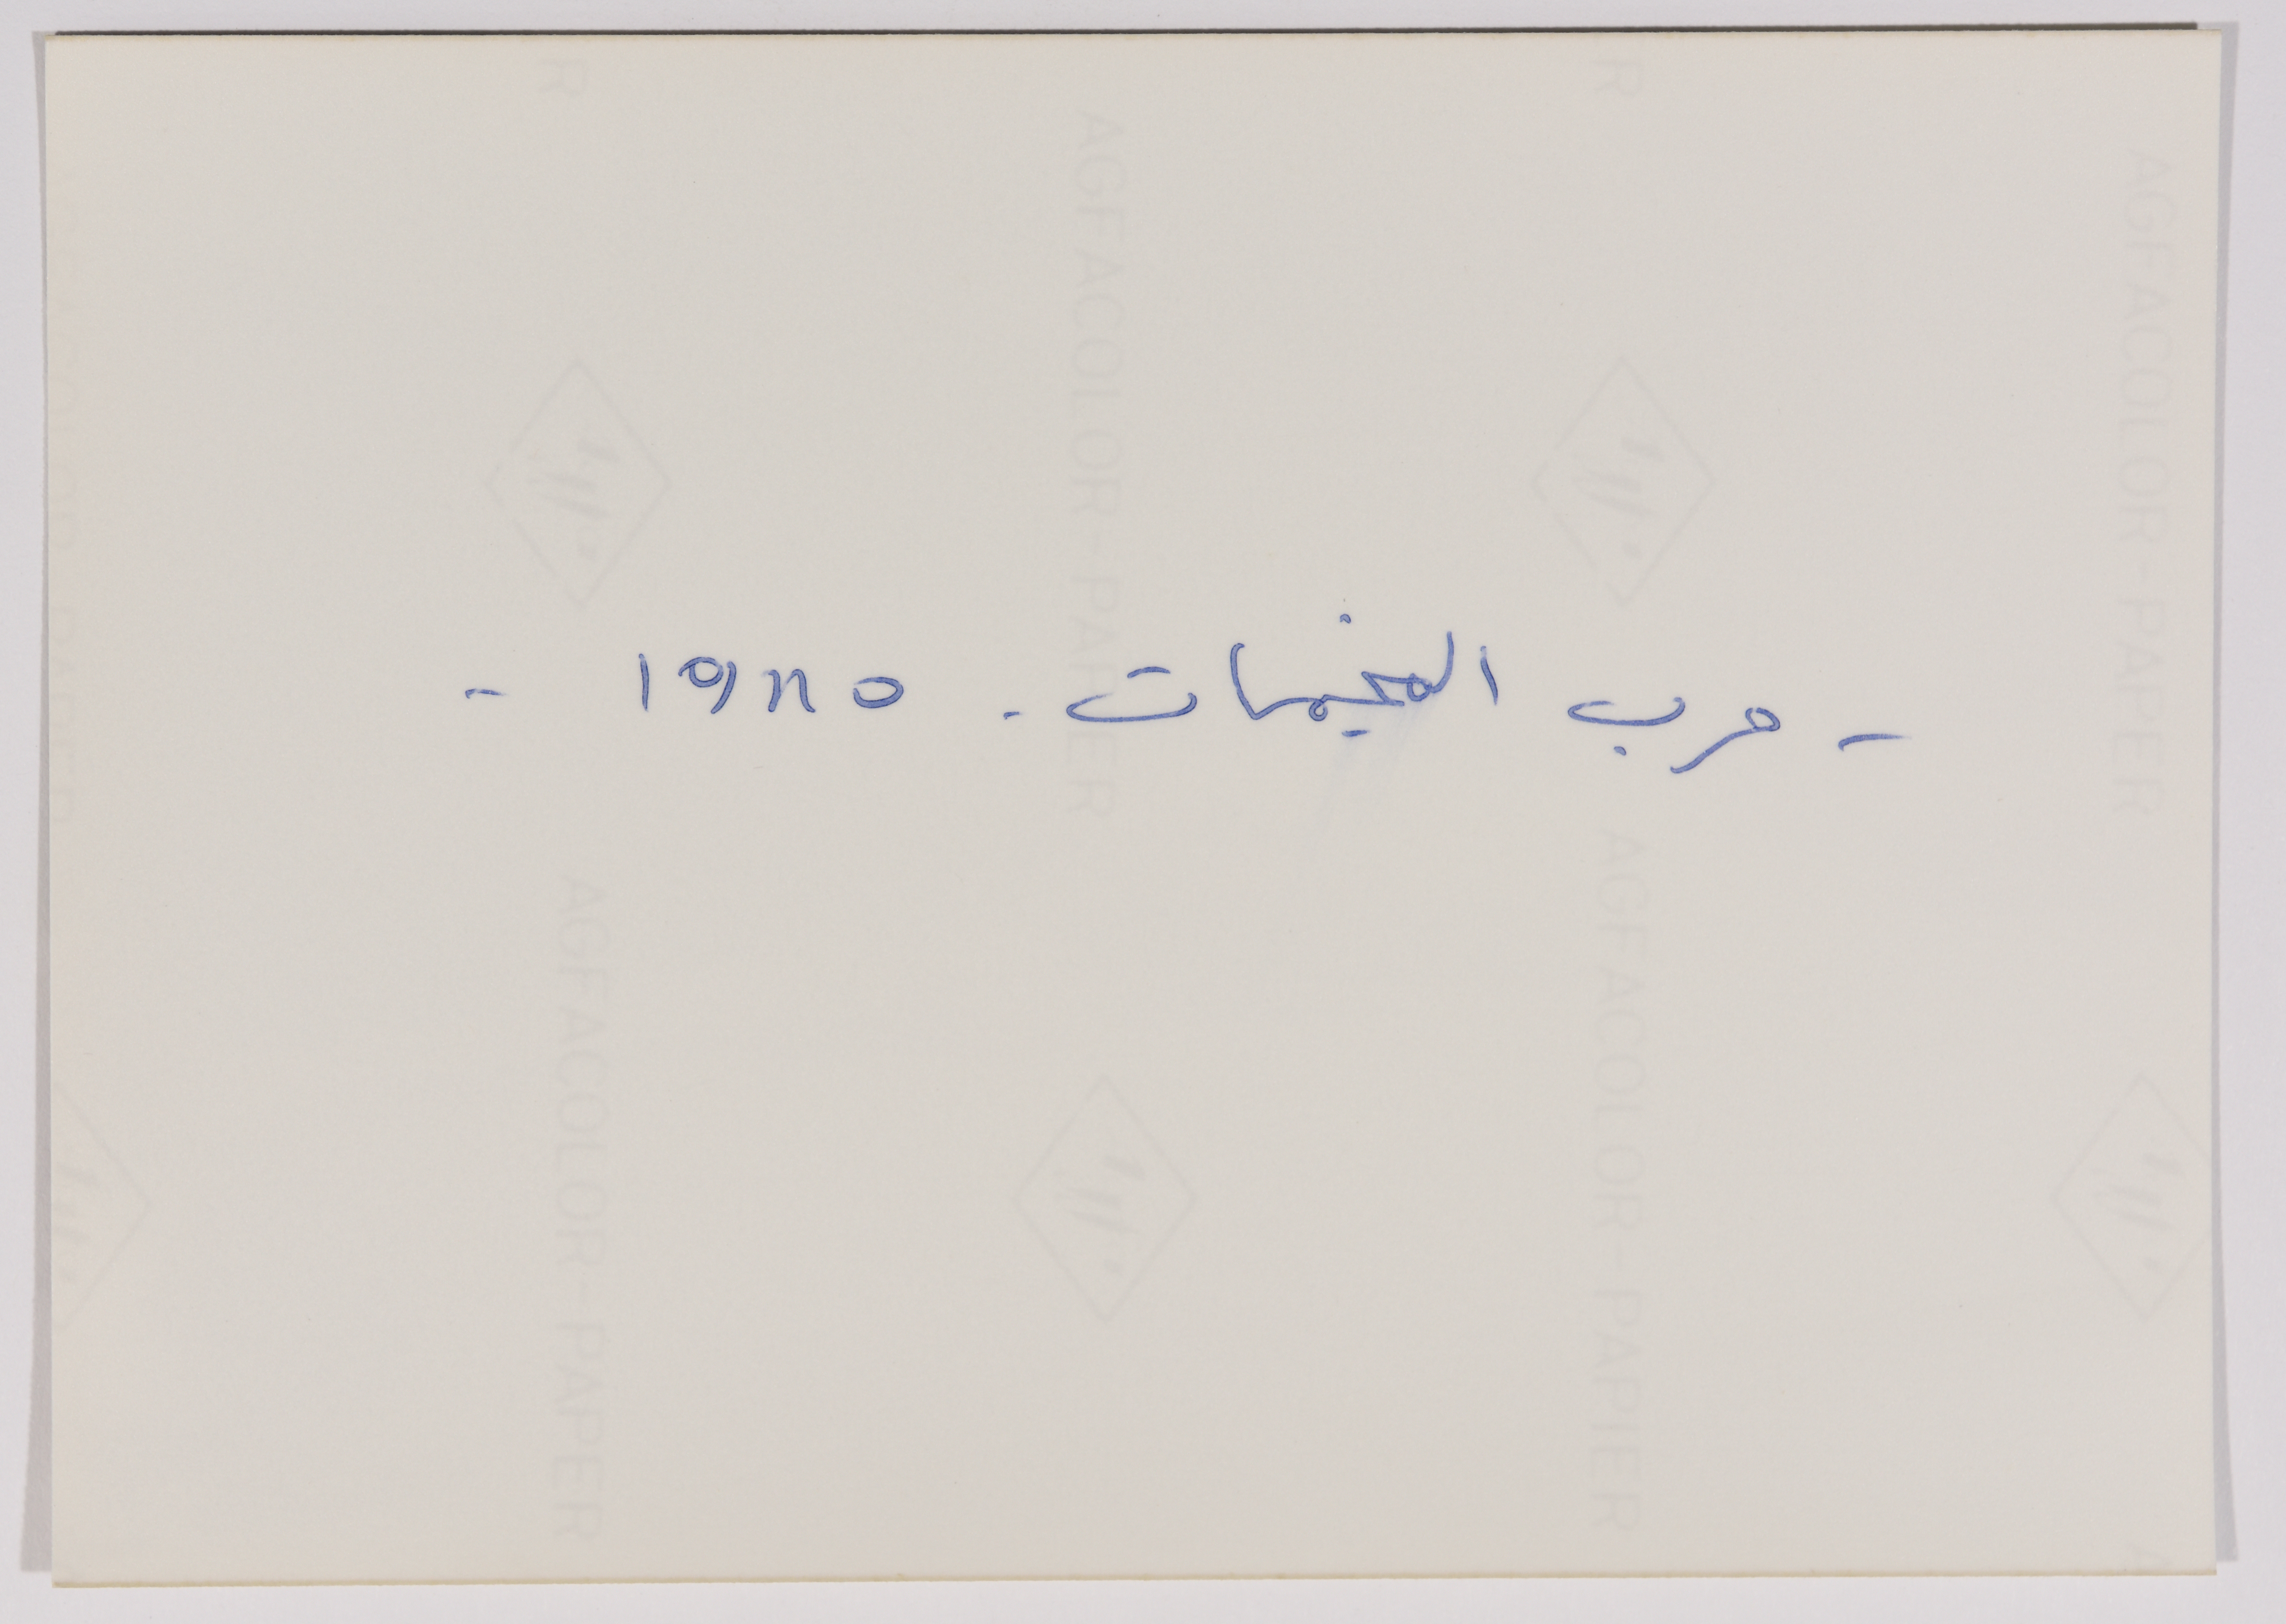 - حرب المخيمات - ١٩٨٥ -
AGFACOLOR-PAPER
AGFACOLOR-PAPER
AGFACOLOR-PAPIER
AGFACOLOR-PAPER